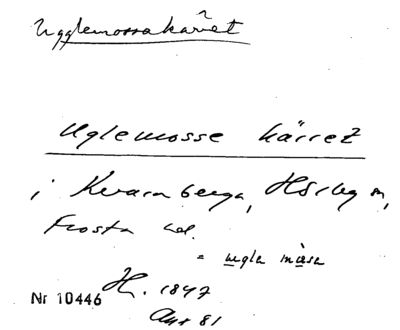 Ugglemossakärret
Uglemosse kärret
i Kvarnberga, Hörby sn,
Frosta hd.
= uegla måsa
H. 1847
Nr 10446
81